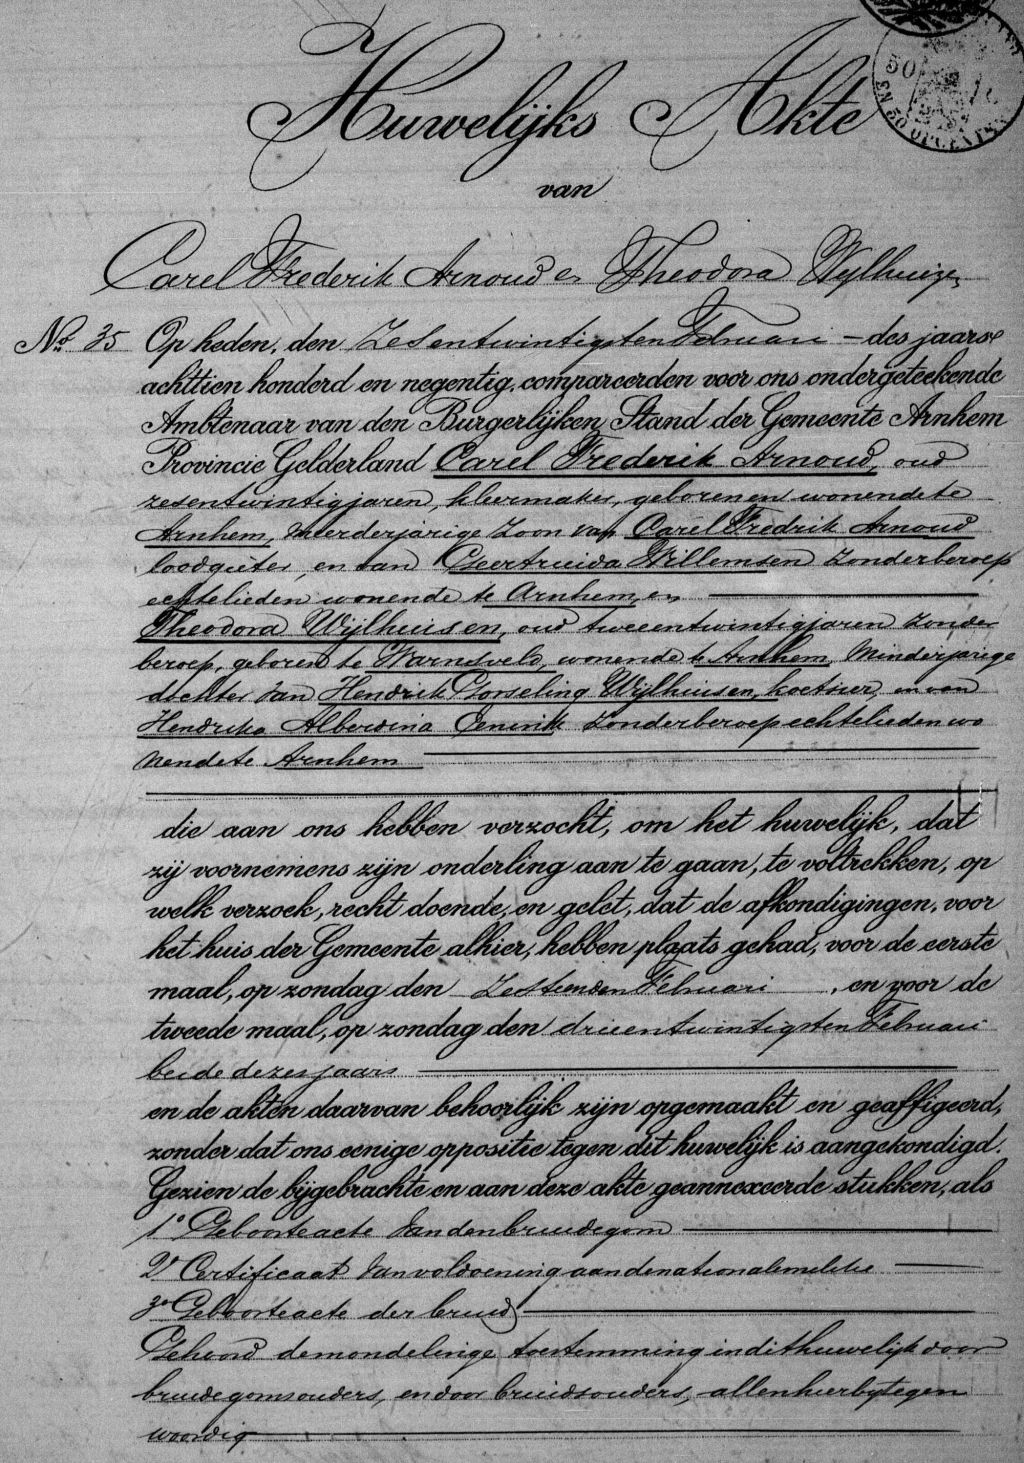 50
EN 50 OPCENTEN
Huwelijks Akte
van
Carel Frederik Arnoud en Theodora Wijlhuizen
No. 35 Op heden, den Zesentwintigsten Februari - des jaars
achttien honderd en negentig, compareerden voor ons ondergeteekende
Ambtenaar van den Burgerlijken Stand der Gemeente Arnhem
Provincie Gelderland Carel Frederik Arnoud, oud
zesentwintig jaren, kleermaker, geboren en wonende te
Arnhem, meerderjarige Zoon van Carel Fredrik Arnoud
loodgieter, en van Geertruida Willemsen zonder beroep
echtelieden wonende te Arnhem, en
Theodora Wijlhuisen, oud tweeentwintig jaren zonder
beroep, geboren te Warnsveld, wonende te Arnhem, Minderjarige
dochter van Hendrik Gorseling Wijlhuisen, koetsier, en van
Hendrika Alberdina Oenink zonder beroep echtelieden wo
nende te Arnhem
die aan ons hebben verzocht, om het huwelijk, dat
zij voornemens zijn onderling aan te gaan, te voltrekken, op
welk verzoek, recht doende, en gelet, dat de afkondigingen, voor
het huis der Gemeente alhier, hebben plaats gehad, voor de eerste
maal, op zondag den Zestienden Februari, en voor de
tweede maal, op zondag den drieentwintigsten Februari
beide dezes jaars
en de akten daarvan behoorlijk zijn opgemaakt en geaffigeerd,
zonder dat ons eenige oppositie tegen dit huwelijk is aangekondigd.
Gezien de bijgebrachte en aan deze akte geannexeerde stukken, als
1o Geboorteacte van den bruidegom
2o Certificaat van voldoening aan de nationale militie
3o Geboorteacte der bruid
Gehoord de mondelinge toestemming in dit huwelijk door
bruidegomsouders, en door bruidsouders, allen hierbij tegen
woordig